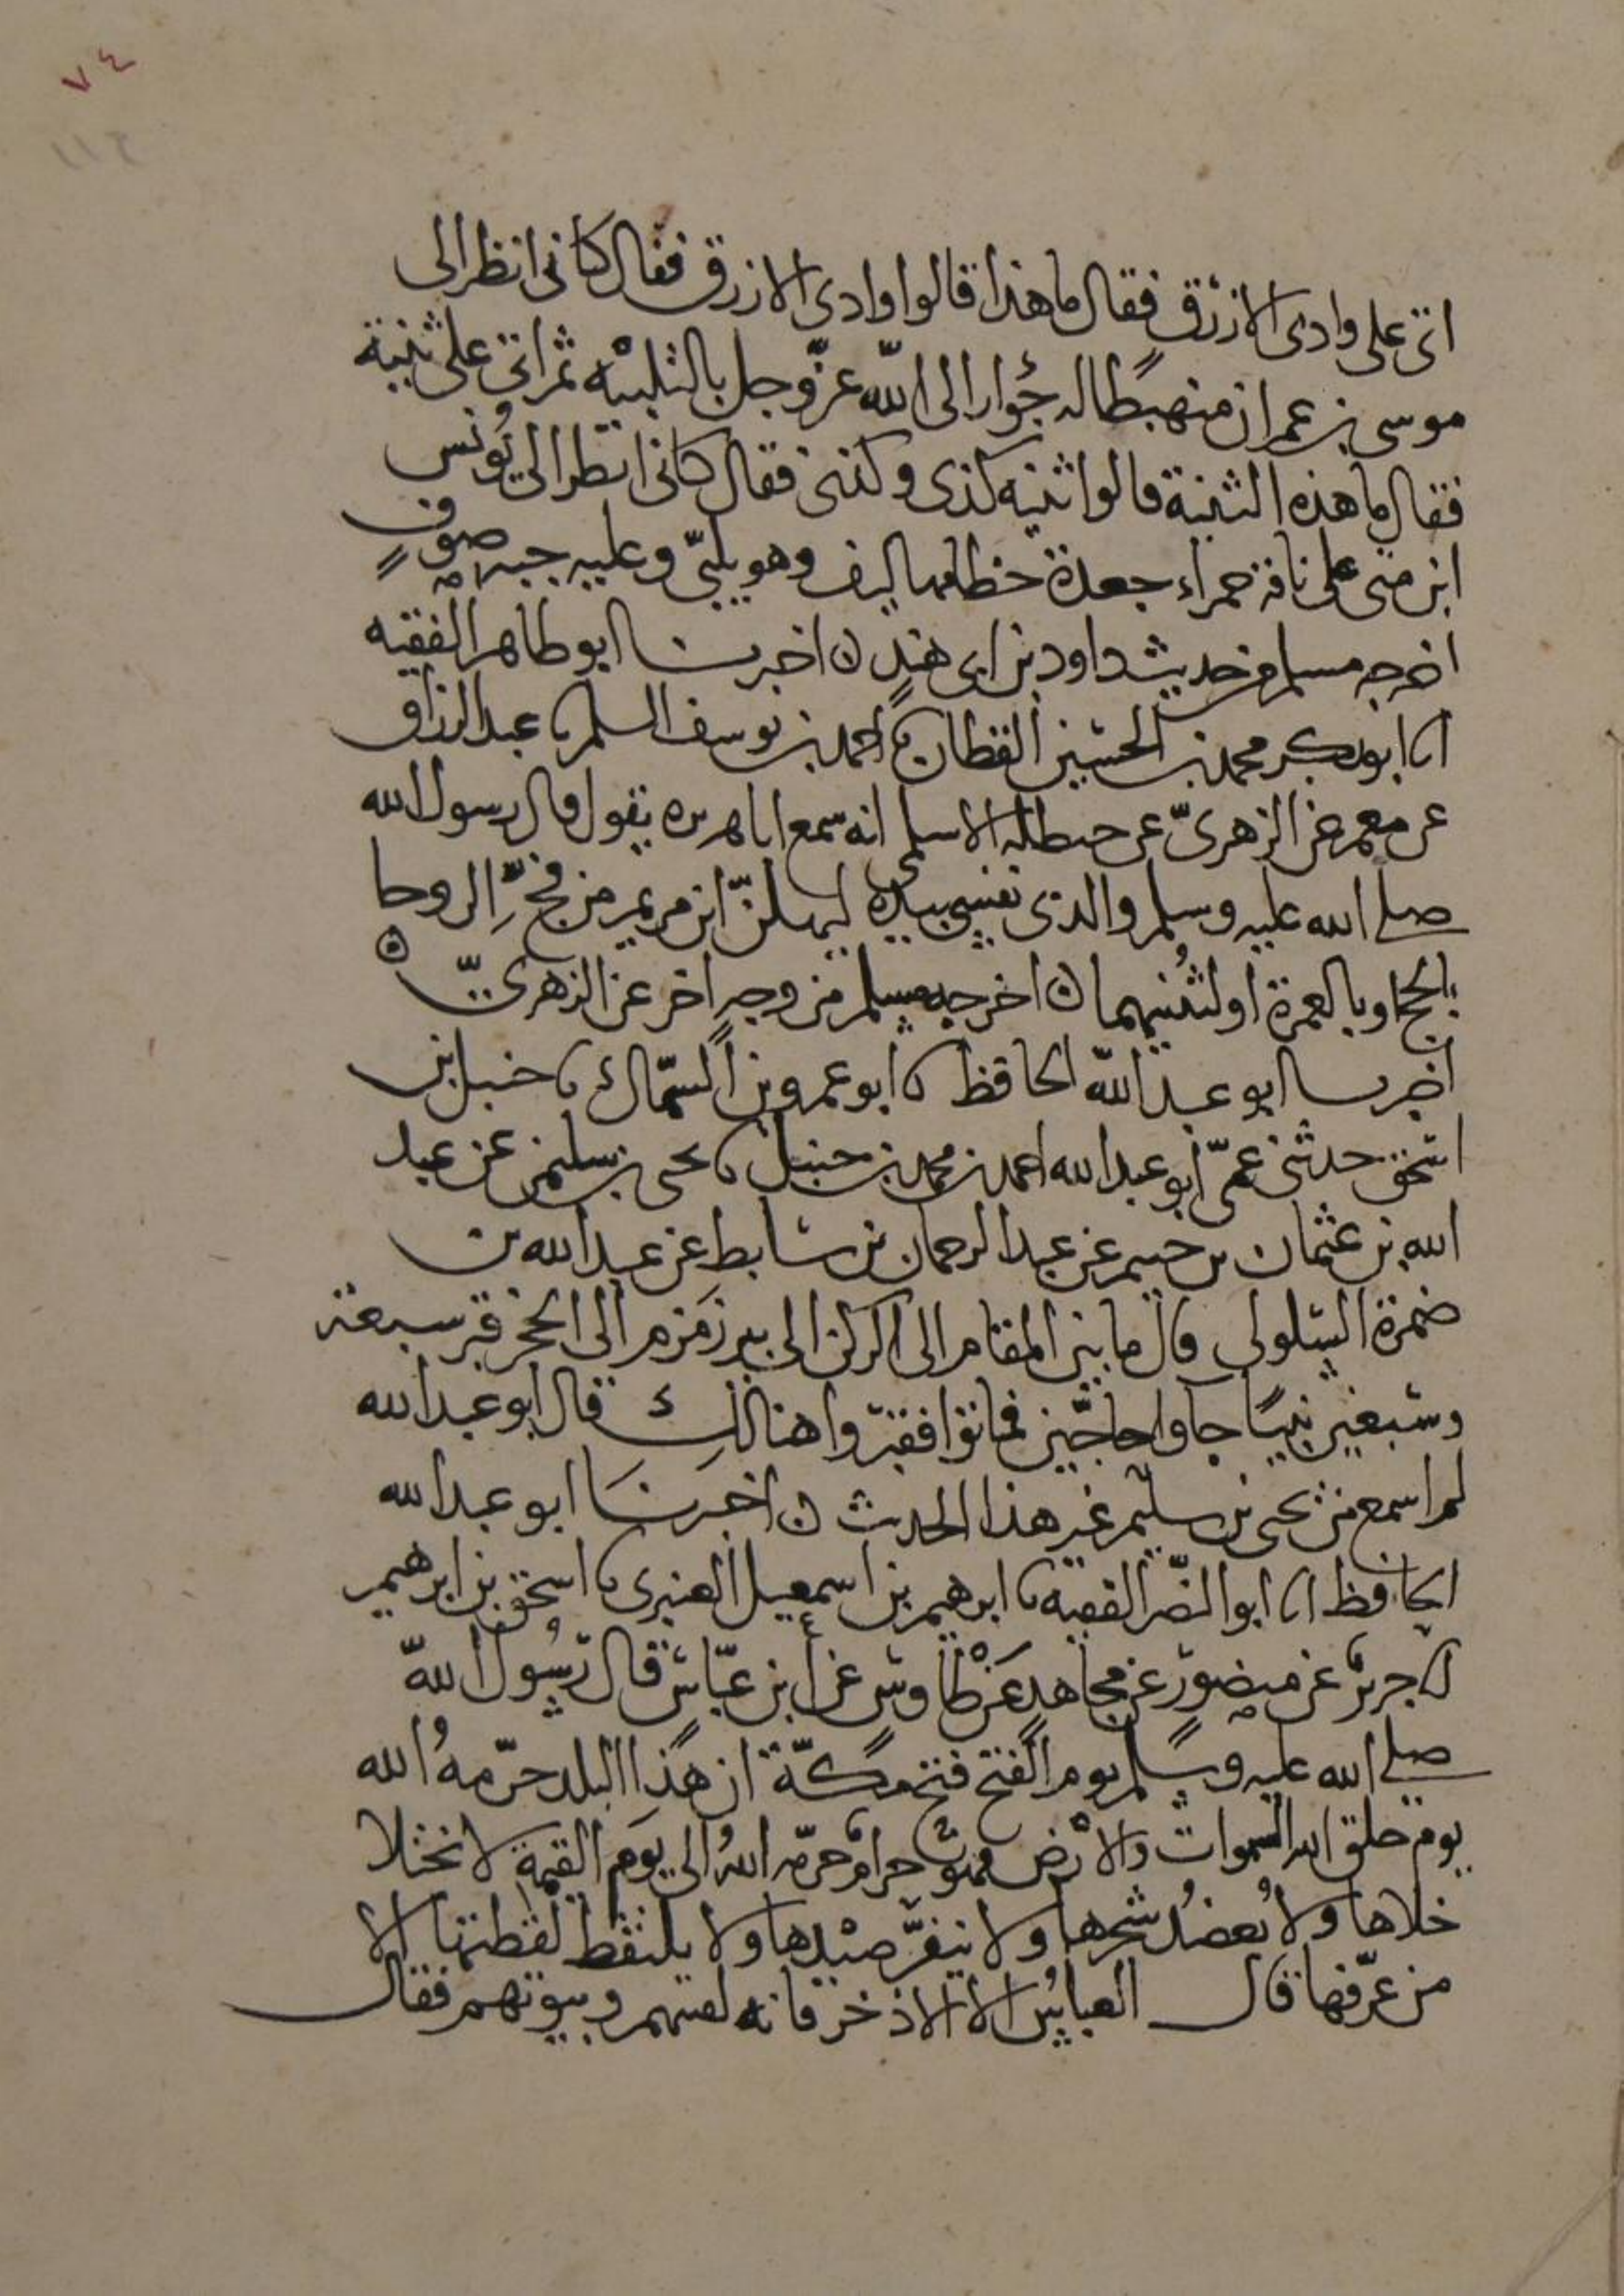 ٧٤
١١٢
اتى على وادى الازرق فقال ما هذا قالوا وادى الازرق فقال كانى انظر الى
موسى بن عمران منهبطا له جؤار الى الله عز وجل بالتلبيه ثم اتى على ثنية
فقال ما هذه الثنية قالوا ثنيه كذى وكذى فقال كانى انظر الى يونس
ابن متى على ناقة حمراء جعدة خطامها ليف وهو يلبى وعليه جبه صوف
اخرجه مسلم من حديث داود بن ابى هند ن اخبرنا ابو طاهر الفقيه
انا ابو بكر محمد بن الحسين القطان نا احمد بن يوسف السلمى نا عبد الرزاق
عن معمر عن الزهرى عن حنظله الاسلمى انه سمع ابا هريره يقول قال رسول الله
صلى الله عليه وسلم والذى نفسى بيده ليهلن ابن مريم من فج الروحا
بالحج او بالعمرة او ليثنيهما ن اخرجه مسلم من وجه اخر عن الزهرى ن
اخبرنا ابو عبد الله الحافظ نا ابو عمرو بن السماك نا حنبل ابن
اسحق حدثنى عمى ابو عبد الله احمد بن محمد بن حنبل نا يحيى بن سليم عن عبد
الله بن عثمان بن خثيم عن عبد الرحمان بن سابط عن عبد الله بن
ضمرة السلولى قال ما بين المقام الى الركن الى بير زمزم الى الحجر قبر سبعة
وسبعين نبيا جاوا حاجين فماتوا فقبروا هنالك قال ابو عبد الله
لم اسمع من يحيى بن سليم غير هذا الحديث ن اخبرنا ابو عبد الله
الحافظ انا ابو النضر الفقيه نا ابرهيم بن اسمعيل العنبرى نا اسحق بن ابرهيم
انا جرير عن منصور عن مجاهد عن طاوس عن ابن عباس قال رسول الله
صلى الله عليه وسلم يوم الفتح فتح مكة ان هذا البلد حرمه الله
يوم خلق الله السموات والارض فهو حرام حرمه الله الى يوم القيمة لا يختلا
خلاها ولا يعضد شجرها ولا ينفر صيدها ولا يلتقط لقطتها الا
من عرفها قال العباس الا الاذخر فانه لقينهم وبيوتهم فقال